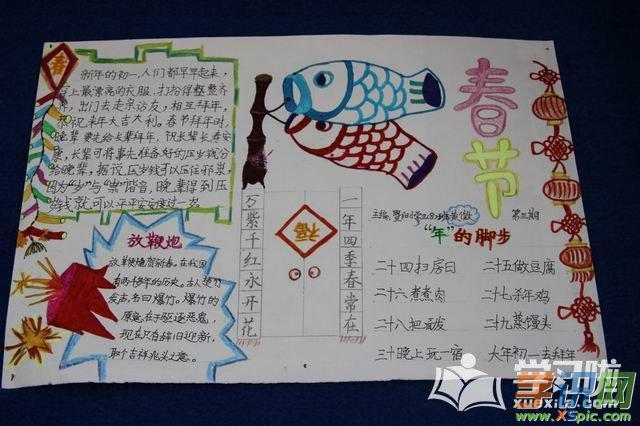 春
新年的初一,人们都早早起来,
穿上最漂亮的衣服,打扮得整整齐
齐,出门去走亲访友,相互拜年,
恭祝来年大吉大利。春节拜年时,
晚辈要先给长辈拜年,祝长辈长寿安
康,长辈可将事先准备好的压岁钱分
给晚辈,据说压岁钱可以压住邪祟,
因为"岁"与"祟"谐音,晚辈得到压
岁钱就可以平平安安度过一岁。
放鞭炮
放鞭炮贺新春,在我国
有两千多年的历史。古人焚竹
发声,名曰爆竹。爆竹的
原意在于驱逐恶鬼,
现在只有辞旧迎新,
取个吉祥兆头之意。
万紫千红永开花
福
一年四季春常在
春节
第三期
"年"的脚步
二十四扫房日
二十五做豆腐
二十六煮煮肉
二十七杀年鸡
二十八把面发
二十九蒸馒头
三十晚上玩一宿
大年初一去拜年
学习啦
xuexila.com
学识网
www.XSpic.com